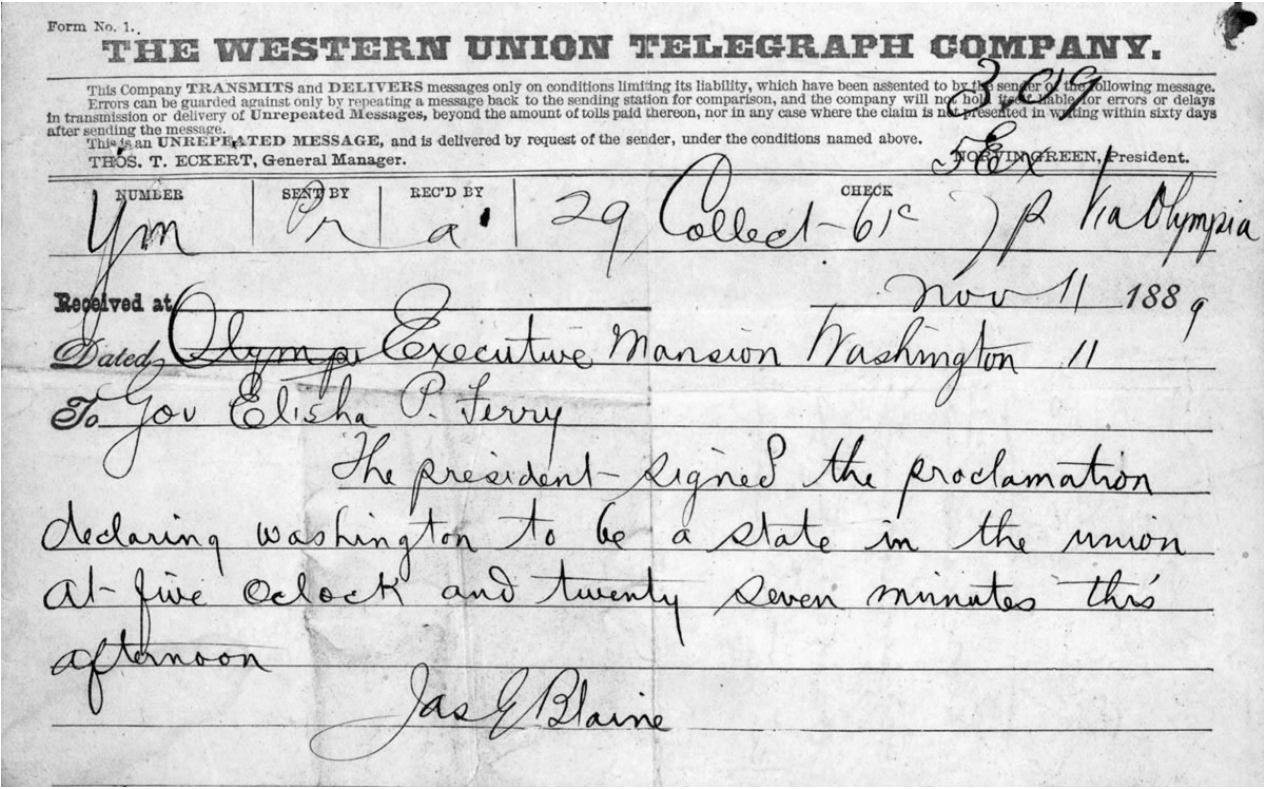 Form No. 1.
THE WESTERN UNION TELEGRAPH COMPANY.
This Company TRANSMITS and DELIVERS messages only on conditions limiting its liability, which have been assented to by the sender of the following message.
Errors can be guarded against only by repeating a message back to the sending station for comparison, and the company will not hold itself liable for errors or delays
in transmission or delivery of Unrepeated Messages, beyond the amount of tolls paid thereon, nor in any case where the claim is not presented in writing within sixty days
after sending the message.
This is an UNREPEATED MESSAGE, and is delivered by request of the sender, under the conditions named above.
THOS. T. ECKERT, General Manager. NORVIN GREEN, President.
3.09
5 Ex
NUMBER SENT BY REC'D BY CHECK
Ym Pr a 29 Collect 61c Via Olympia
Received at Nov 11 1889
Dated Olympi Executive Mansion Washington 11
To Gov Elisha P. Ferry
The president signed the proclamation
declaring washington to be a state in the union
at five oclock and twenty seven minutes this
afternoon
Jas G Blaine